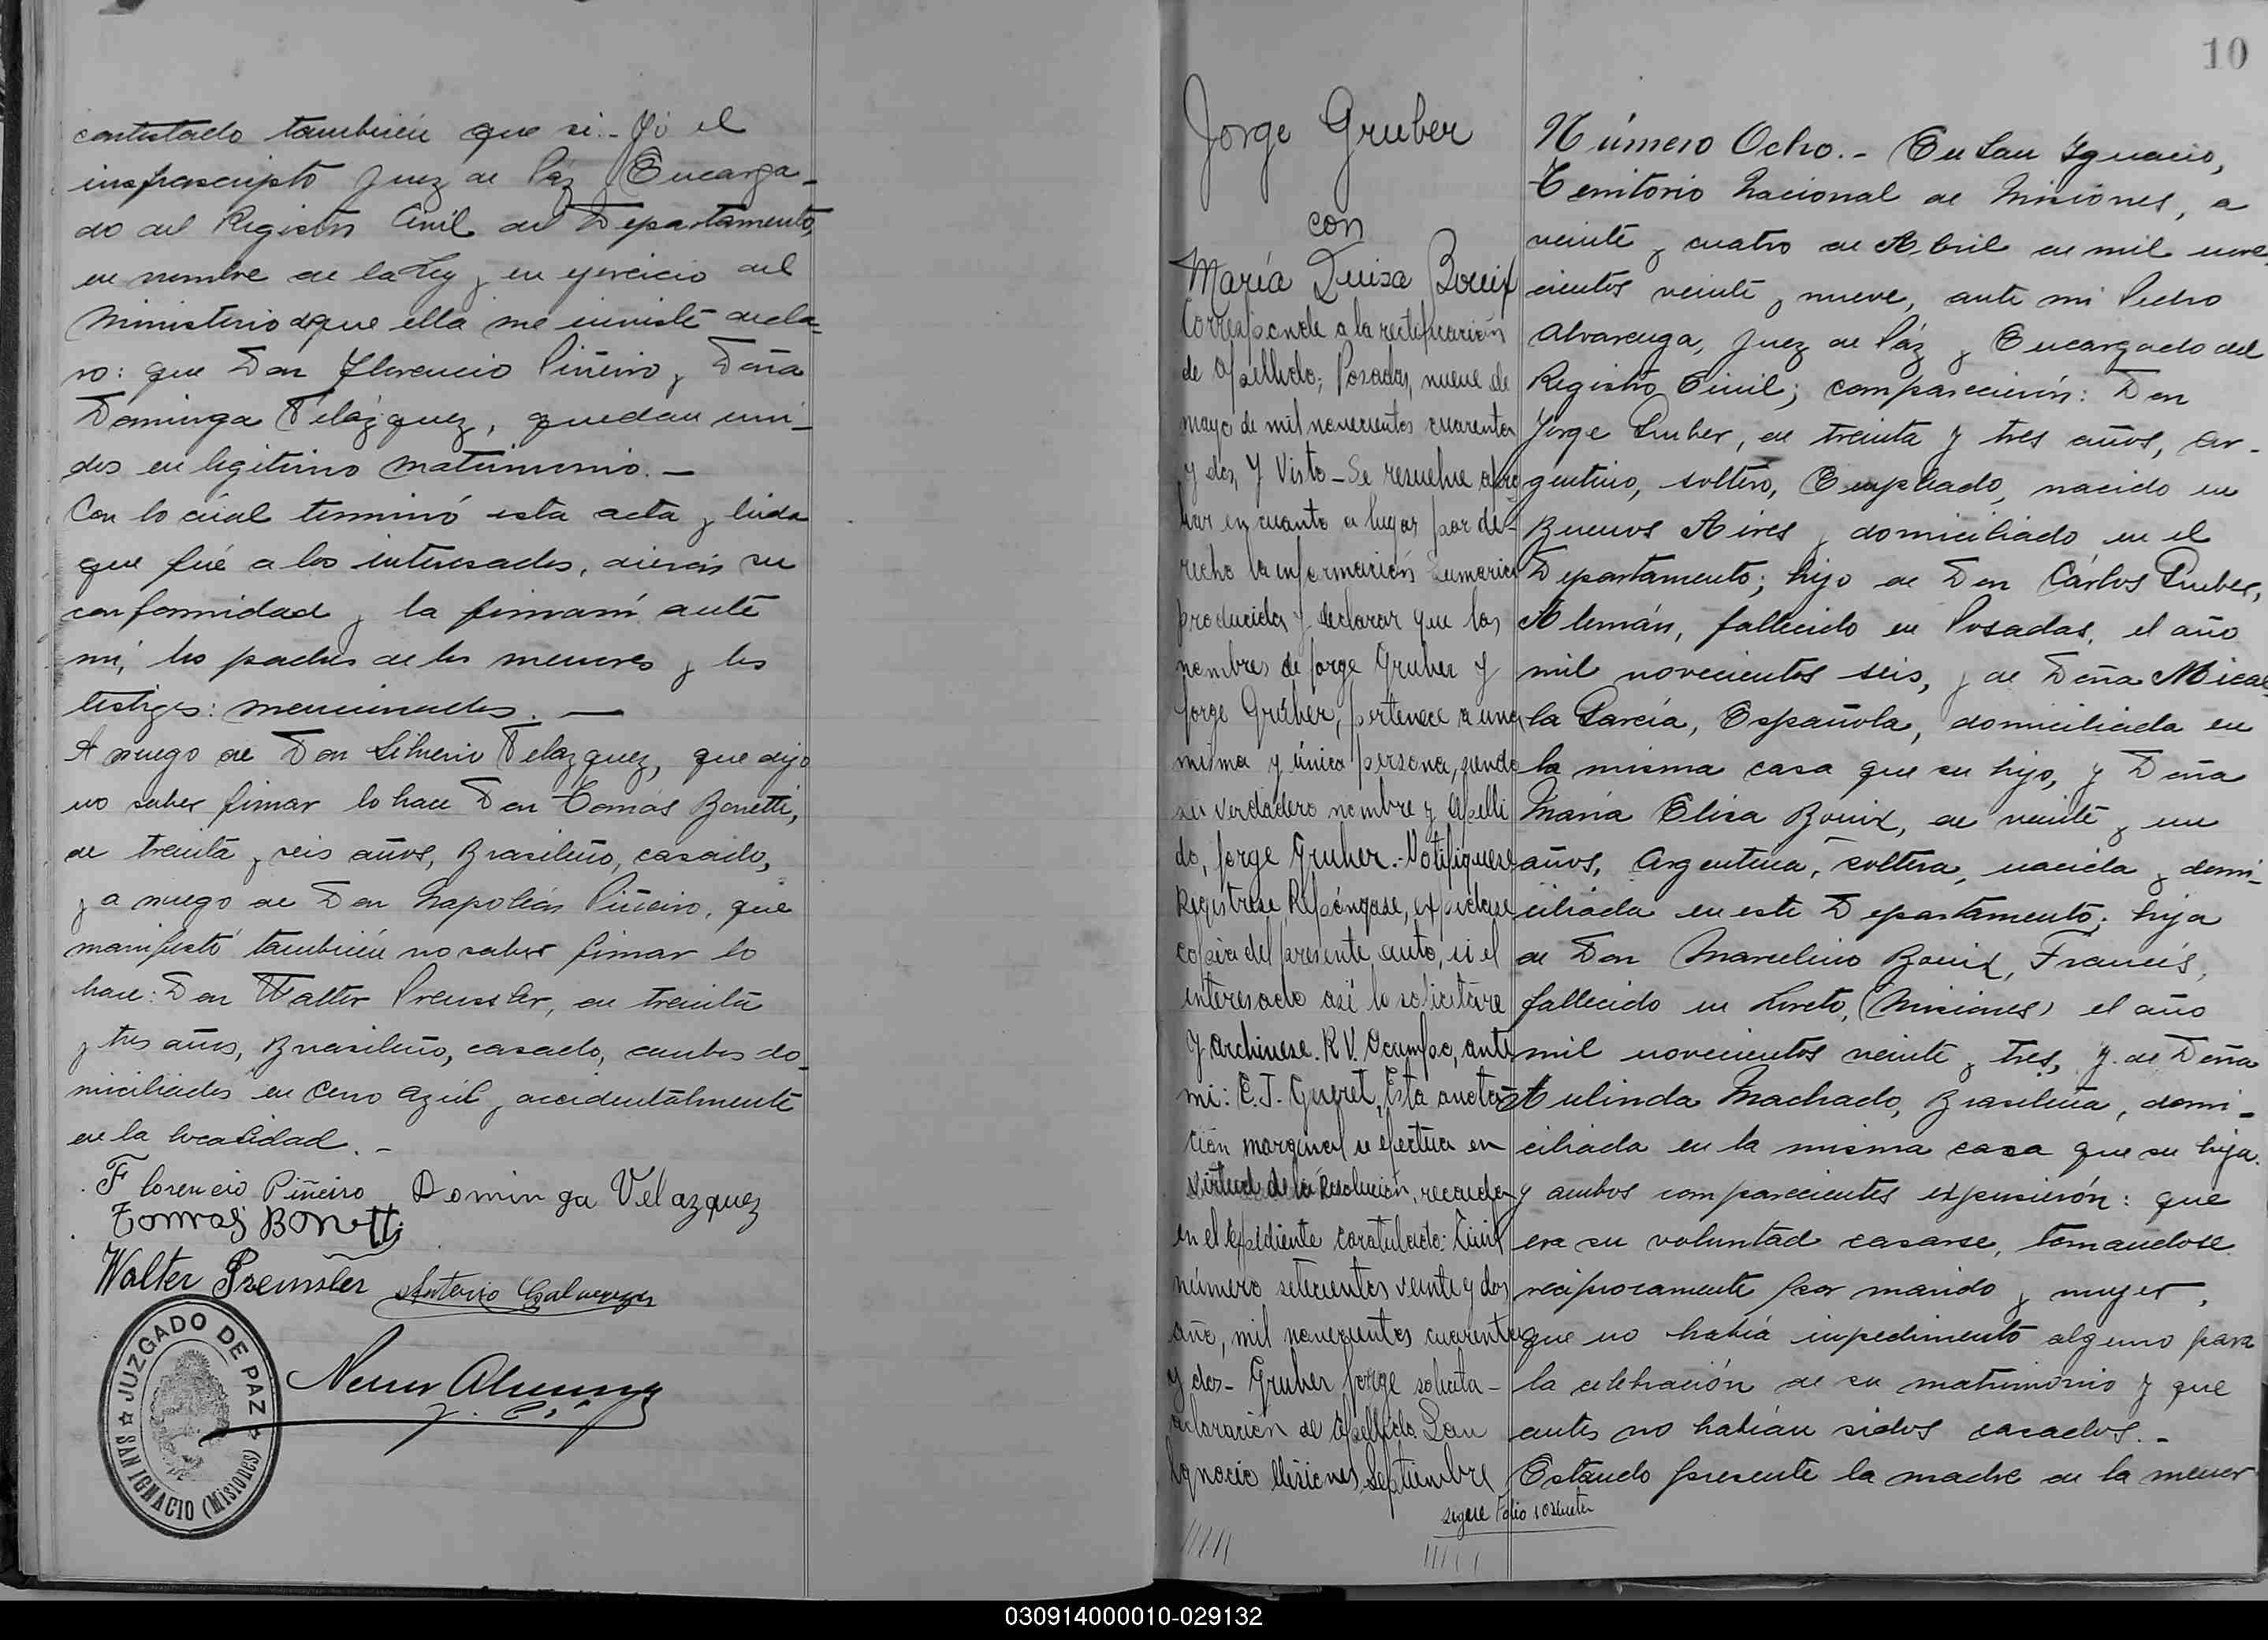 contestado también que si.- Yó el
infrascripto Juez de Páz y Encarga-
do del Registro Civil del Departamento,
en nombre de la Ley y en ejercicio del
Ministerio de que ella me inviste decla-
ro: que Don Florencio Piñeiro y Doña
Dominga Velázquez, quedan uni-
dos en legitimo matrimonio.-
Con lo cúal terminó esta acta y leida
que fué a los interesados, dierón su
conformidad y la firmarón ante
mi, los padres de los menores y los
testigos: mencionados.-
A ruego de Don Silverio Velazquez, que dijo
no saber firmar lo hace Don Tomás Bonetti,
de treinta y seis años, Brasileño, casado,
y a ruego de Don Napoleón Piñeiro, que
manifestó también no saber firmar lo
hace: Don Walter Preussler, de treinta
y tres años, Brasileño, casado, ambos do-
miciliados en Cerro Azúl y accidentálmente
en la localidad.-
Florencio Piñeiro Dominga Velazquez
Tomas Bonetti
Walter Preussler Antonio
JUZGADO DE PAZ
SAN IGNACIO (Misiones)
10
Jorge Gruber
con
María Luisa Bouix
Corresponde a la rectificación
de apellido; Posadas, nueve de
mayo de mil novecientos cuarenta
y dos, Y Visto - Se resuelve apro
bar en cuanto a lugar por de-
recho la información sumaria
producida y declarar que los
nombres de Jorge Gruber y
Jorge Grüher, pertenece a una
misma y única persona, siendo
su verdadero nombre y apelli
do, Jorge Gruber.- Notifiquese
Registrese Repóngase, expidase
copia del presente auto, si el
interesado así lo solicitare
y archivese. R.V. Ocampo, ante
mi: E.J. Gueret, Esta anota-
ción marginal se efectua en
virtud de la Resolución, recaida
en el expediente caratulado: Civil
número setecientos veinte y dos
año, mil novecientos cuarenta
y dos- Gruber Jorge solicita-
aclaración de apellido. San
Ignacio Misiones, Septiembre
sigue Folio
Número Ocho.- En San Ignacio,
Territorio Nacional de Misiones, a
veinte y cuatro de Abril de mil nove
cientos veinte y nueve, ante mi Pedro
Alvarenga, Juez de Páz y Encargado del
Registro Civil; comparecierón: Don
Jorge Gruber, de treinta y tres años, Ar-
gentino, soltero, Empleado, nacido en
Buenos Aires y domiciliado en el
Departamento; hijo de Don Cárlos Gruber,
Alemán, fallecido en Posadas, el año
mil novecientos seis, y de Doña Micae
la García, Española, domiciliada en
la misma casa que su hijo, y Doña
María Elisa Bouix, de veinte y un
años, Argentina, soltera, nacida y domi-
ciliada en este Departamento; hija
de Don Marcelino Bouix, Francés,
fallecido en Loreto, (Misiones) el año
mil novecientos veinte y tres, y de Doña
Aulinda Machado, Brasileña, domi-
ciliada en la misma casa que su hija.
y ambos comparecientes expusierón: que
era su voluntad casarse, tomandose
reciprocamente por marido y mujer,
que no había impedimento alguno para
la celebración de su matrimonio y que
antes no habían sidos casados.-
Estando presente la madre de la menor
030914000010-029132